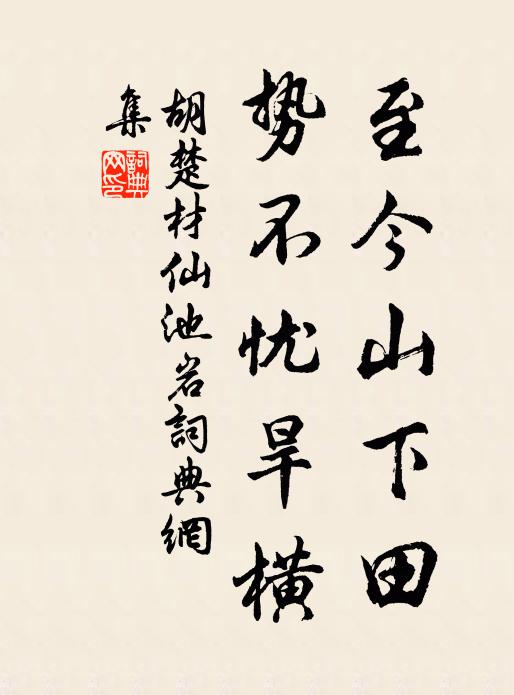 至今山下田
势不忧旱横
胡楚材仙池岩詞典網
集
詞典
网印